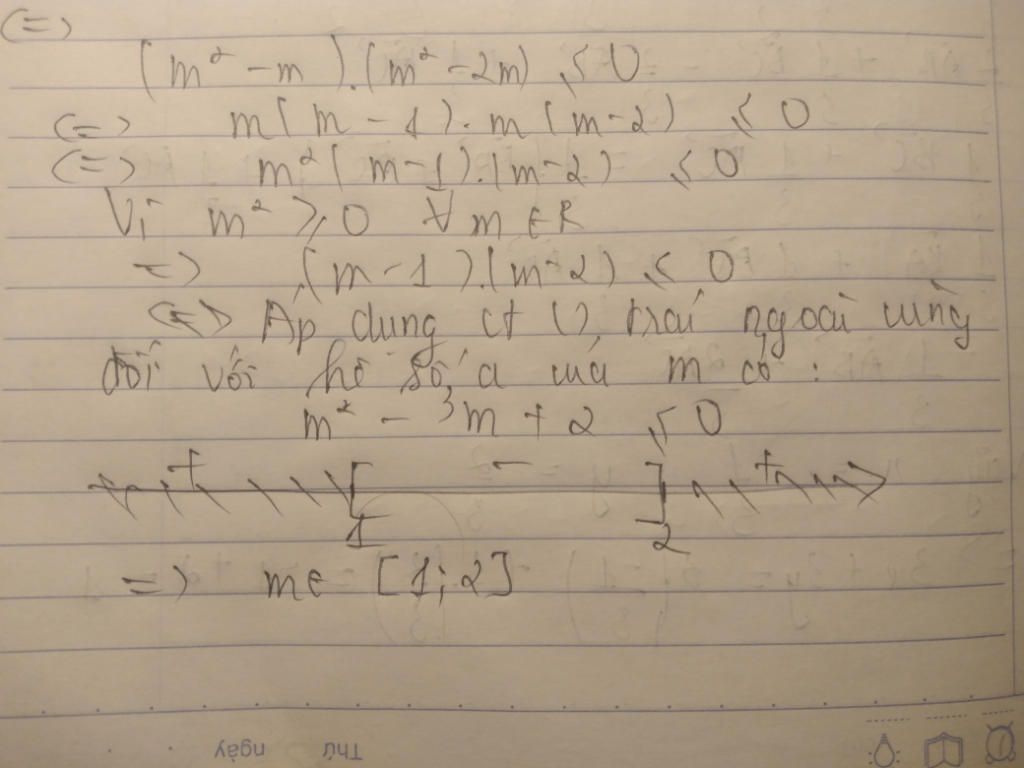 (=)
(m² - m).(m² - 2m) ≤ 0
(=) m(m - 1).m(m - 2) ≤ 0
(=) m²(m - 1).(m - 2) ≤ 0
Vì m² ≥ 0 ∀ m ∈ R
=) (m - 1).(m - 2) ≤ 0
(=) Áp dung ct trái ngoài cùng
đối với hê số a của m có :
m² - 3m + 2 ≤ 0
+ [ - ] +
1 2
=) m ∈ [1; 2]
Thứ ngày